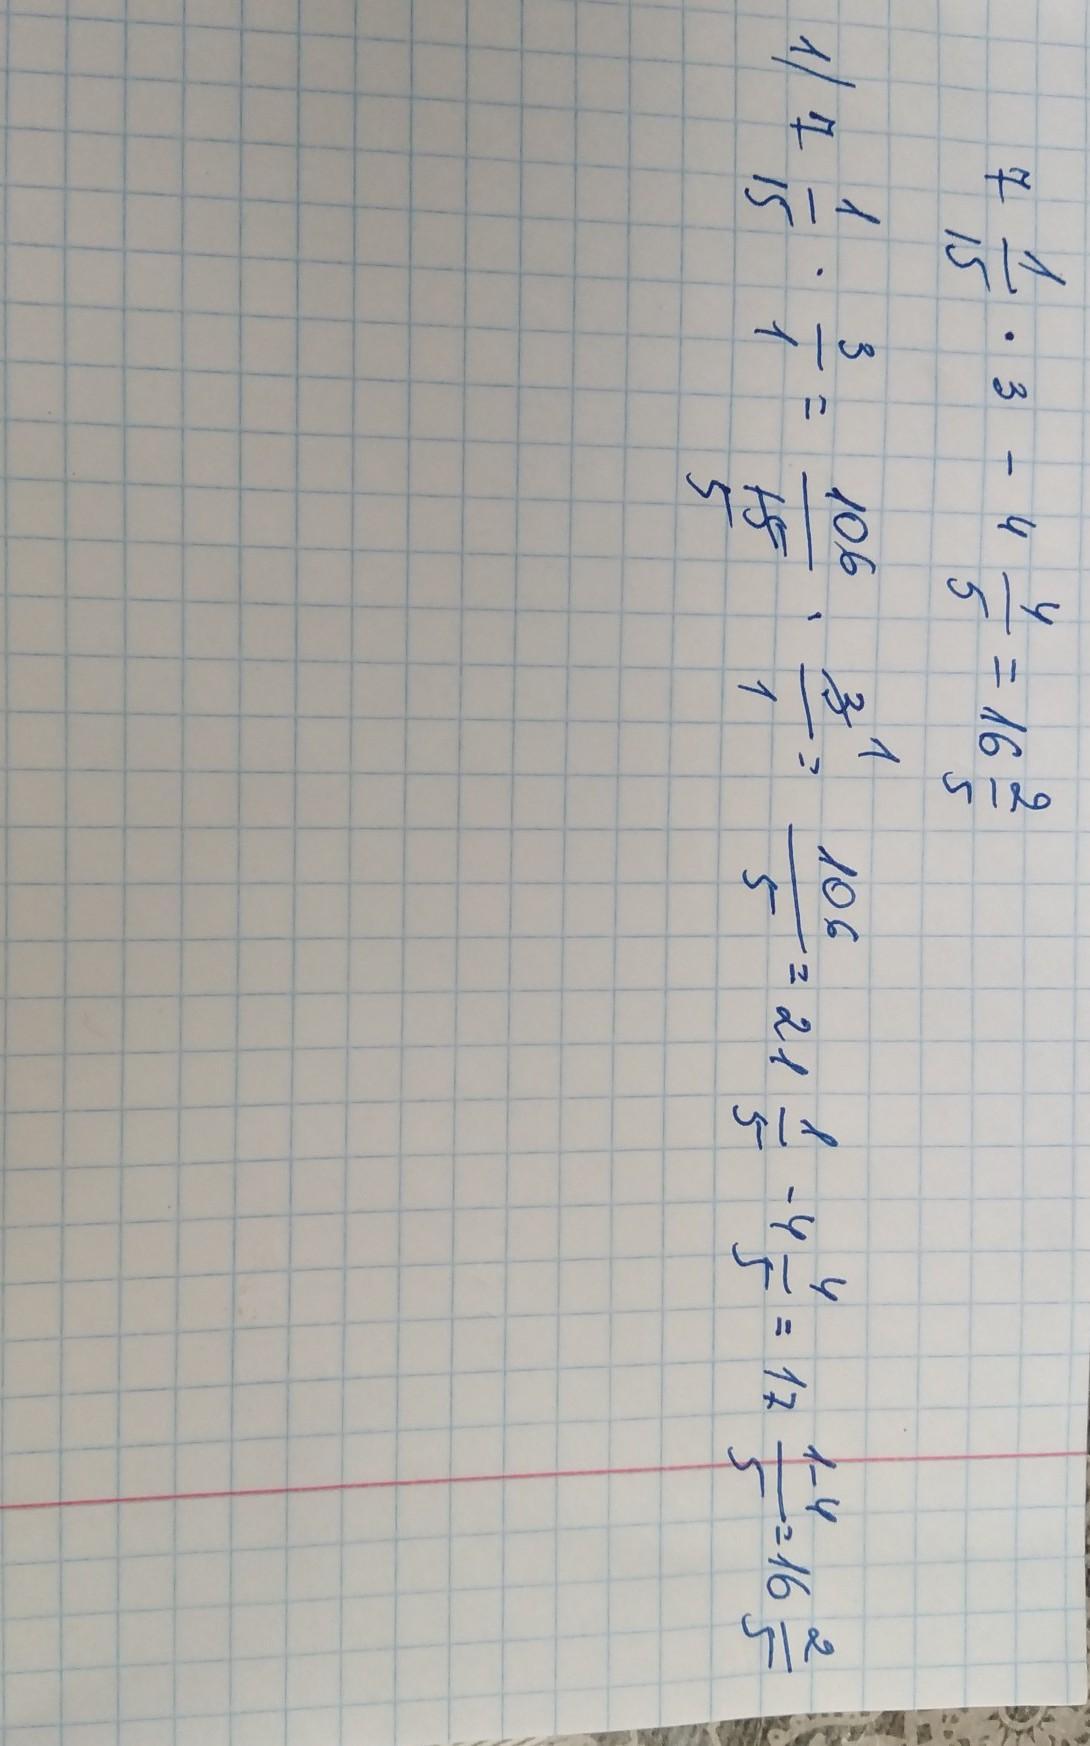 7 1/15 · 3 - 4 4/5 = 16 2/5
1) 7 1/15 · 3/1 = 106/15 5 · 3 1/1 = 106/5 = 21 1/5 - 4 4/5 = 17 1-4/5 = 16 2/5